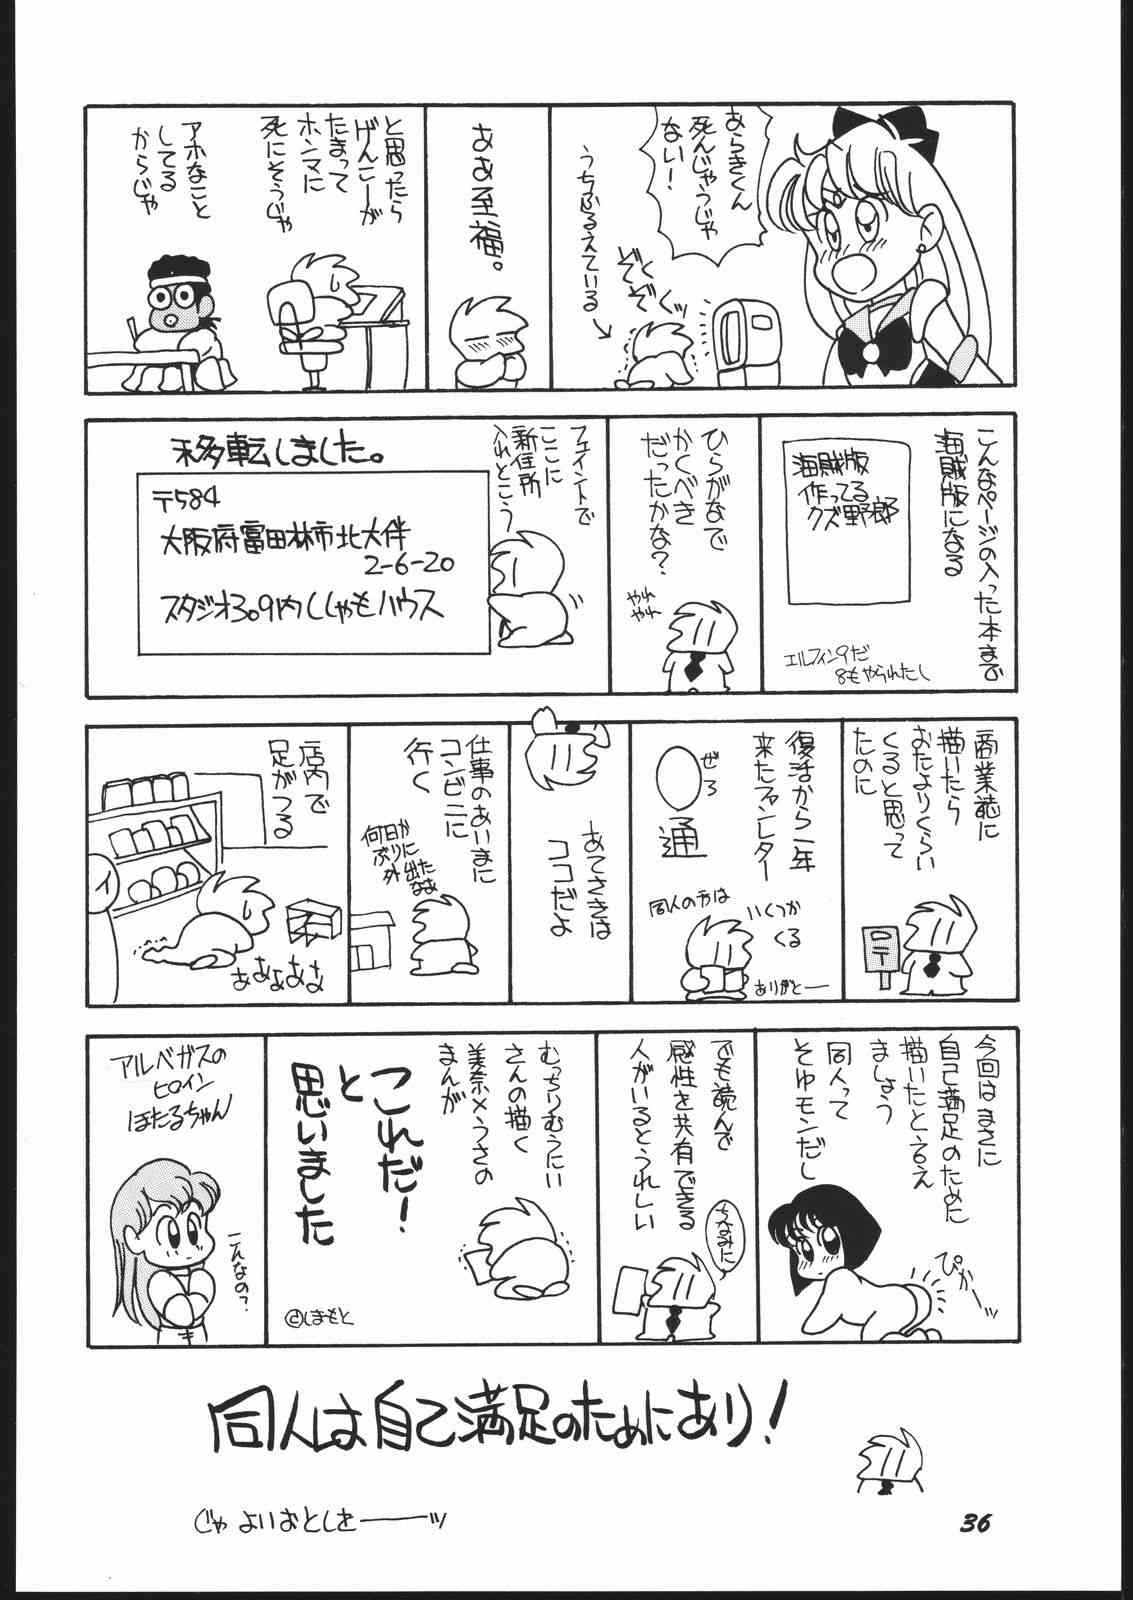 あらきくん
死んじゃうじゃ
ない！
うちふるえている
ぞくぞくッ
ああ至福。
と思ったら
げんこーが
たまって
ホンマに
死にそうじゃ
アホなこと
してる
からじゃ
こんなページの入った本まで
海賊版になる
海賊版
作ってる
クズ野郎
エルフィン9だ
8もやられたし
ひらがなで
かくべき
だったかな？
やれ
やれ
フェイントで
ここに
新住所
入れとこう
移転しました。
〒584
大阪府富田林市北大伴
2-6-20
スタジオ3.9内ししゃもハウス
商業誌に
描いたら
おたよりくらい
くると思って
たのに
復活から一年
来たファンレター
ぜろ
0通
同人の方は
いくつか
くる
ありがとー
あてさきは
ココだよ
仕事のあいまに
コンビニに
行く
何日か
ぶりに
外出たなあ
店内で
足がつる
イ
ああああぁ
今回はまさに
自己満足のために
描いたとゆえ
ましょう
同人って
そゆモンだし
ぴかーッ
でも読んで
感性を共有できる
人がいるとうれしい
ちなみに
むっちりむうにい
さんの描く
美奈×うさの
まんが
これだ！
と
思いました
©しまもと
アルベガスの
ヒロイン
ほたるちゃん
こんなの？
同人は自己満足のためにあり！
じゃ よいおとしをーーッ
36